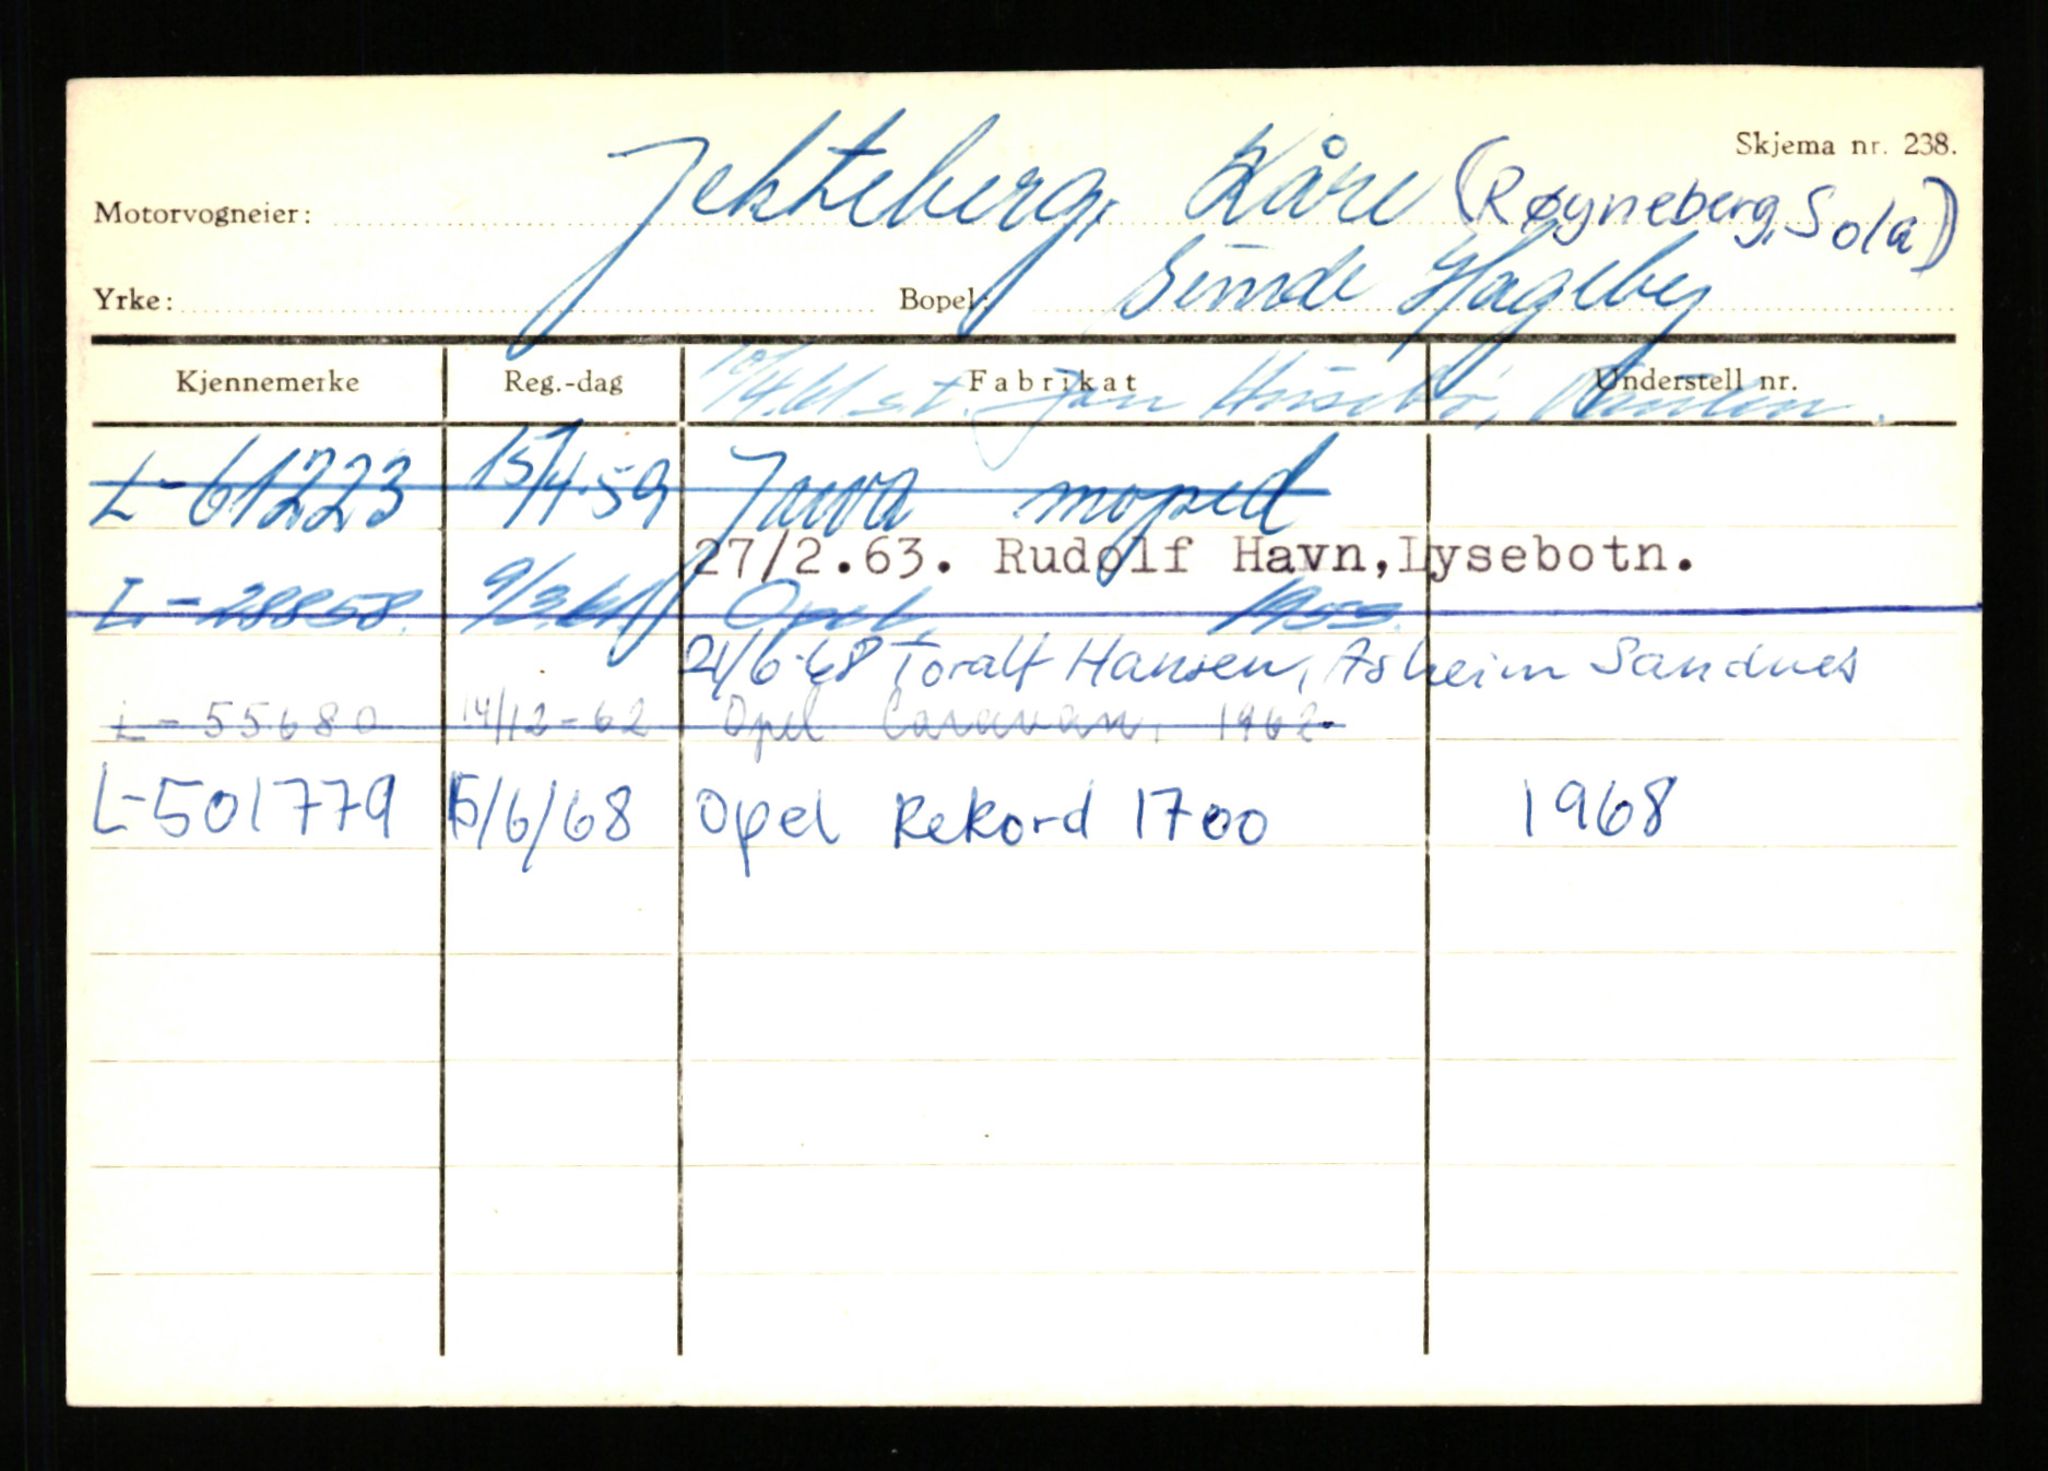 Skjema nr. 238.
Motorvogneier: Jekteberg, Kåre (Røyneberg, Sola)
Yrke: Bopel: Sunde Hageby
Kjennemerke Reg.-dag Fabrikat Understell nr.
s.t. Jan
L-61223 15/4.59 Jawa moped
27/2.63. Rudolf Havn, Lysebotn.
L-28858. 9/3.61 Opel
21/6-68 Toralf Hansen, Asheim Sandnes
L-55680 14/12-62 Opel Caravan, 1962
L-501779 15/6/68 Opel Rekord 1700 1968